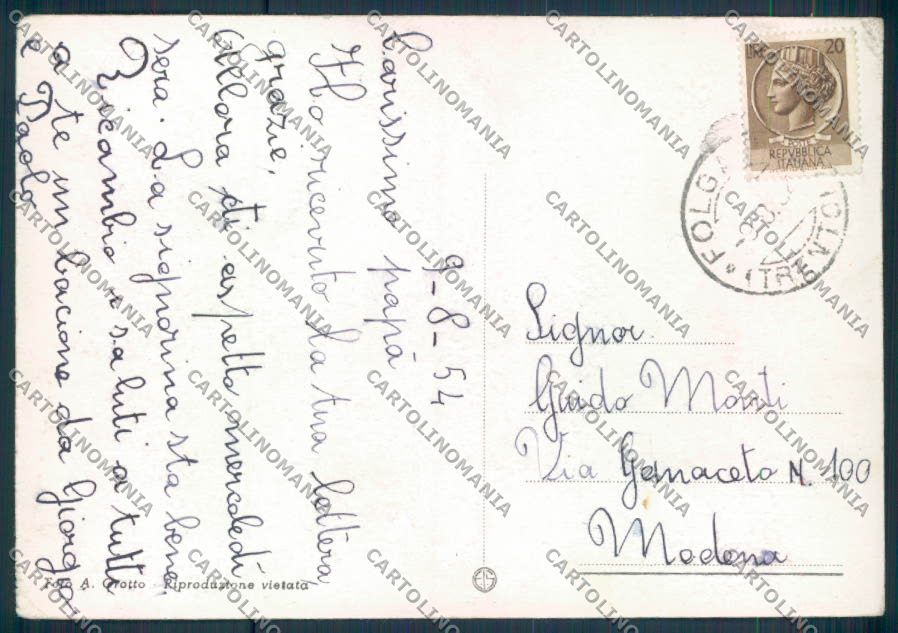 9-8-54
Carissimo papà
Ho ricevuto la tua lettera
grazie.
Allora ti aspetto mercoledì
sera. La signorina sta bene
Ricambio i saluti a tutti
a te un bacione da Giorgio
e Paolo
Signor
Guido Monti
Via Ganaceto N. 100
Modena
LIRE 20
POSTE
REPVBBLICA
ITALIANA
(TRENTO)
Foto A. Grotto - Riproduzione vietata
CARTOLINOMANIA